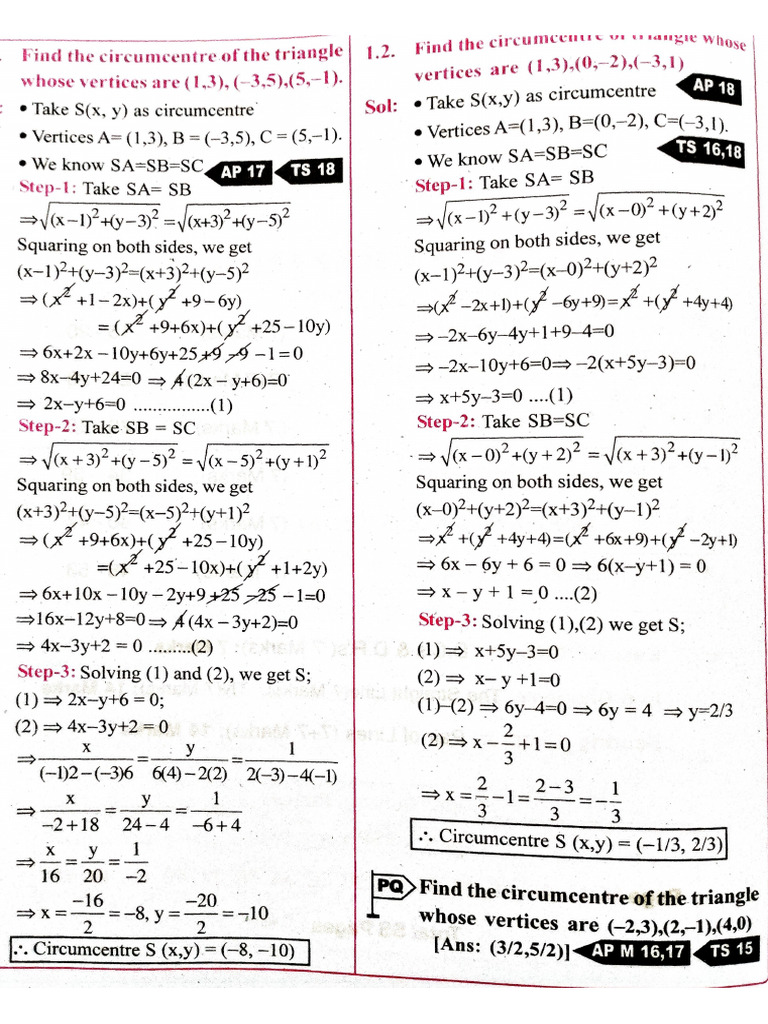 . Find the circumcentre of the triangle
whose vertices are (1,3), (–3,5),(5,–1).
: • Take S(x, y) as circumcentre
• Vertices A= (1,3), B = (–3,5), C = (5,–1).
• We know SA=SB=SC AP 17 TS 18
Step-1: Take SA= SB
⇒√(x–1)²+(y–3)² =√(x+3)²+(y–5)²
Squaring on both sides, we get
(x–1)²+(y–3)²=(x+3)²+(y–5)²
⇒ (x² +1–2x)+(y² +9–6y)
= (x² +9+6x)+(y² +25–10y)
⇒ 6x+2x –10y+6y+25+9 –9 –1=0
⇒ 8x–4y+24=0 ⇒ 4(2x – y+6)=0
⇒ 2x–y+6=0 ................(1)
Step-2: Take SB = SC
⇒√(x+3)²+(y–5)² =√(x–5)²+(y+1)²
Squaring on both sides, we get
(x+3)²+(y–5)²=(x–5)²+(y+1)²
⇒ (x² +9+6x)+(y² +25–10y)
=(x² +25–10x)+(y² +1+2y)
⇒6x+10x –10y – 2y+9+25 –25 –1=0
⇒16x–12y+8=0⇒ 4(4x –3y+2)=0
⇒ 4x–3y+2 = 0 .........(2)
Step-3: Solving (1) and (2), we get S;
(1) ⇒ 2x–y+6 = 0;
(2) ⇒ 4x–3y+2 = 0
⇒ x/((–1)2–(–3)6) = y/(6(4)–2(2)) = 1/(2(–3)–4(–1))
⇒ x/(–2+18) = y/(24–4) = 1/(–6+4)
⇒ x/16 = y/20 = 1/–2
⇒ x = –16/2 = –8, y = –20/2 = –10
∴ Circumcentre S (x,y) = (–8, –10)
1.2. Find the circumcentre of triangle whose
vertices are (1,3),(0,–2),(–3,1)
Sol: • Take S(x,y) as circumcentre AP 18
• Vertices A=(1,3), B=(0,–2), C=(–3,1).
• We know SA=SB=SC TS 16,18
Step-1: Take SA= SB
⇒√(x–1)²+(y–3)² =√(x–0)²+(y+2)²
Squaring on both sides, we get
(x–1)²+(y–3)²=(x–0)²+(y+2)²
⇒(x² –2x+1)+(y² –6y+9)=x² +(y² +4y+4)
⇒ –2x–6y–4y+1+9–4=0
⇒ –2x–10y+6=0⇒ –2(x+5y–3)=0
⇒ x+5y–3=0 ....(1)
Step-2: Take SB=SC
⇒√(x–0)²+(y+2)² =√(x+3)²+(y–1)²
Squaring on both sides, we get
(x–0)²+(y+2)²=(x+3)²+(y–1)²
⇒x² +(y² +4y+4)=(x² +6x+9)+(y² –2y+1)
⇒ 6x – 6y + 6 = 0 ⇒ 6(x–y+1) = 0
⇒ x – y + 1 = 0 ....(2)
Step-3: Solving (1),(2) we get S;
(1) ⇒ x+5y–3=0
(2) ⇒ x– y +1=0
(1)–(2) ⇒ 6y–4=0 ⇒ 6y = 4 ⇒ y=2/3
(2)⇒ x – 2/3 +1=0
⇒ x = 2/3 –1= (2–3)/3 = –1/3
∴ Circumcentre S (x,y) = (–1/3, 2/3)
PQ Find the circumcentre of the triangle
whose vertices are (–2,3),(2,–1),(4,0)
[Ans: (3/2,5/2)] AP M 16,17 TS 15